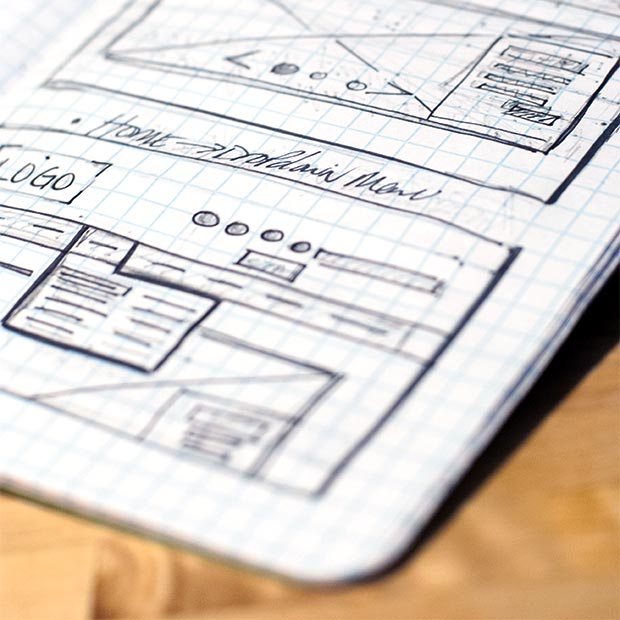 HOME → Dropdown Menu
LOGO